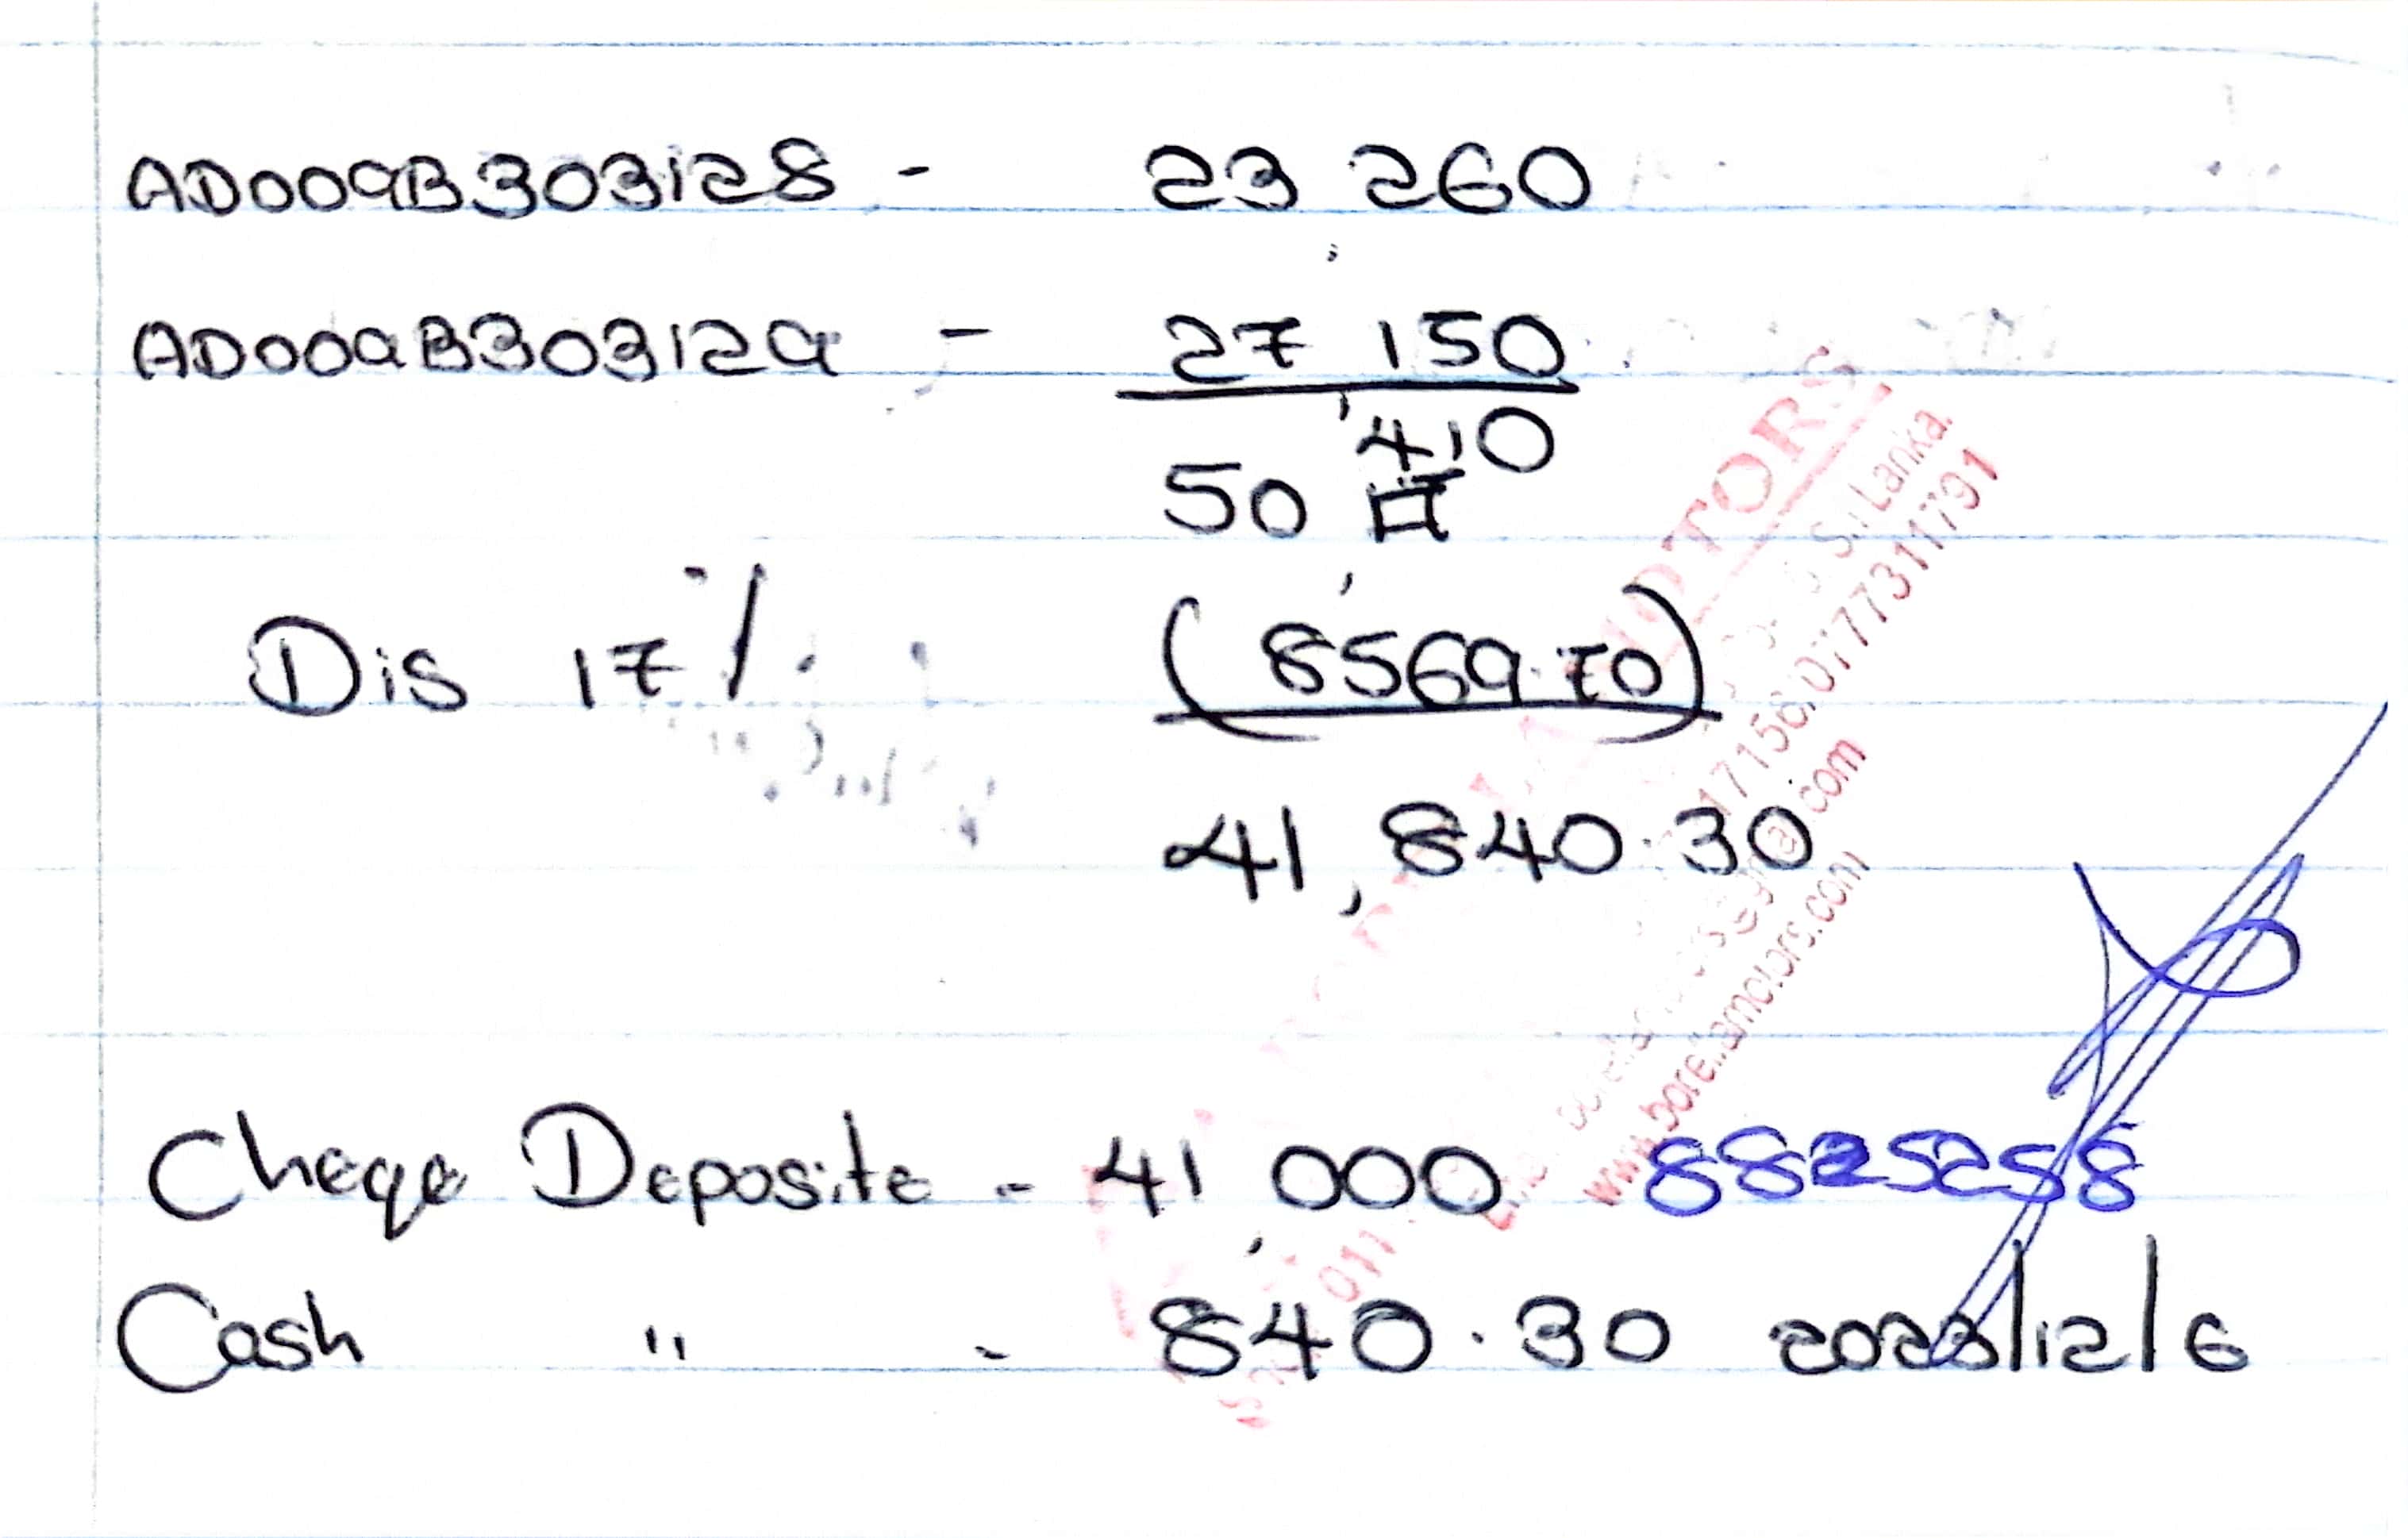 AD009B303128 - 23,260
AD009B303129 - 27,150
50,410
Dis 17% (8569.70)
41,840.30
Cheqe Deposite - 41,000 8825258
Cash " - 840.30 2023/12/6
MOTORS
Sri Lanka.
0777311791
www.borellamotors.com